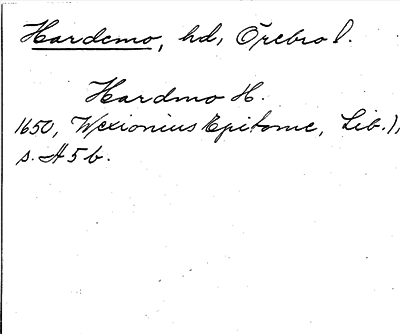 Hardemo, hd, Örebro l.
Hardmo H.
1650, Wexionius Epitome, Lib. 1,
s. H 5 b.